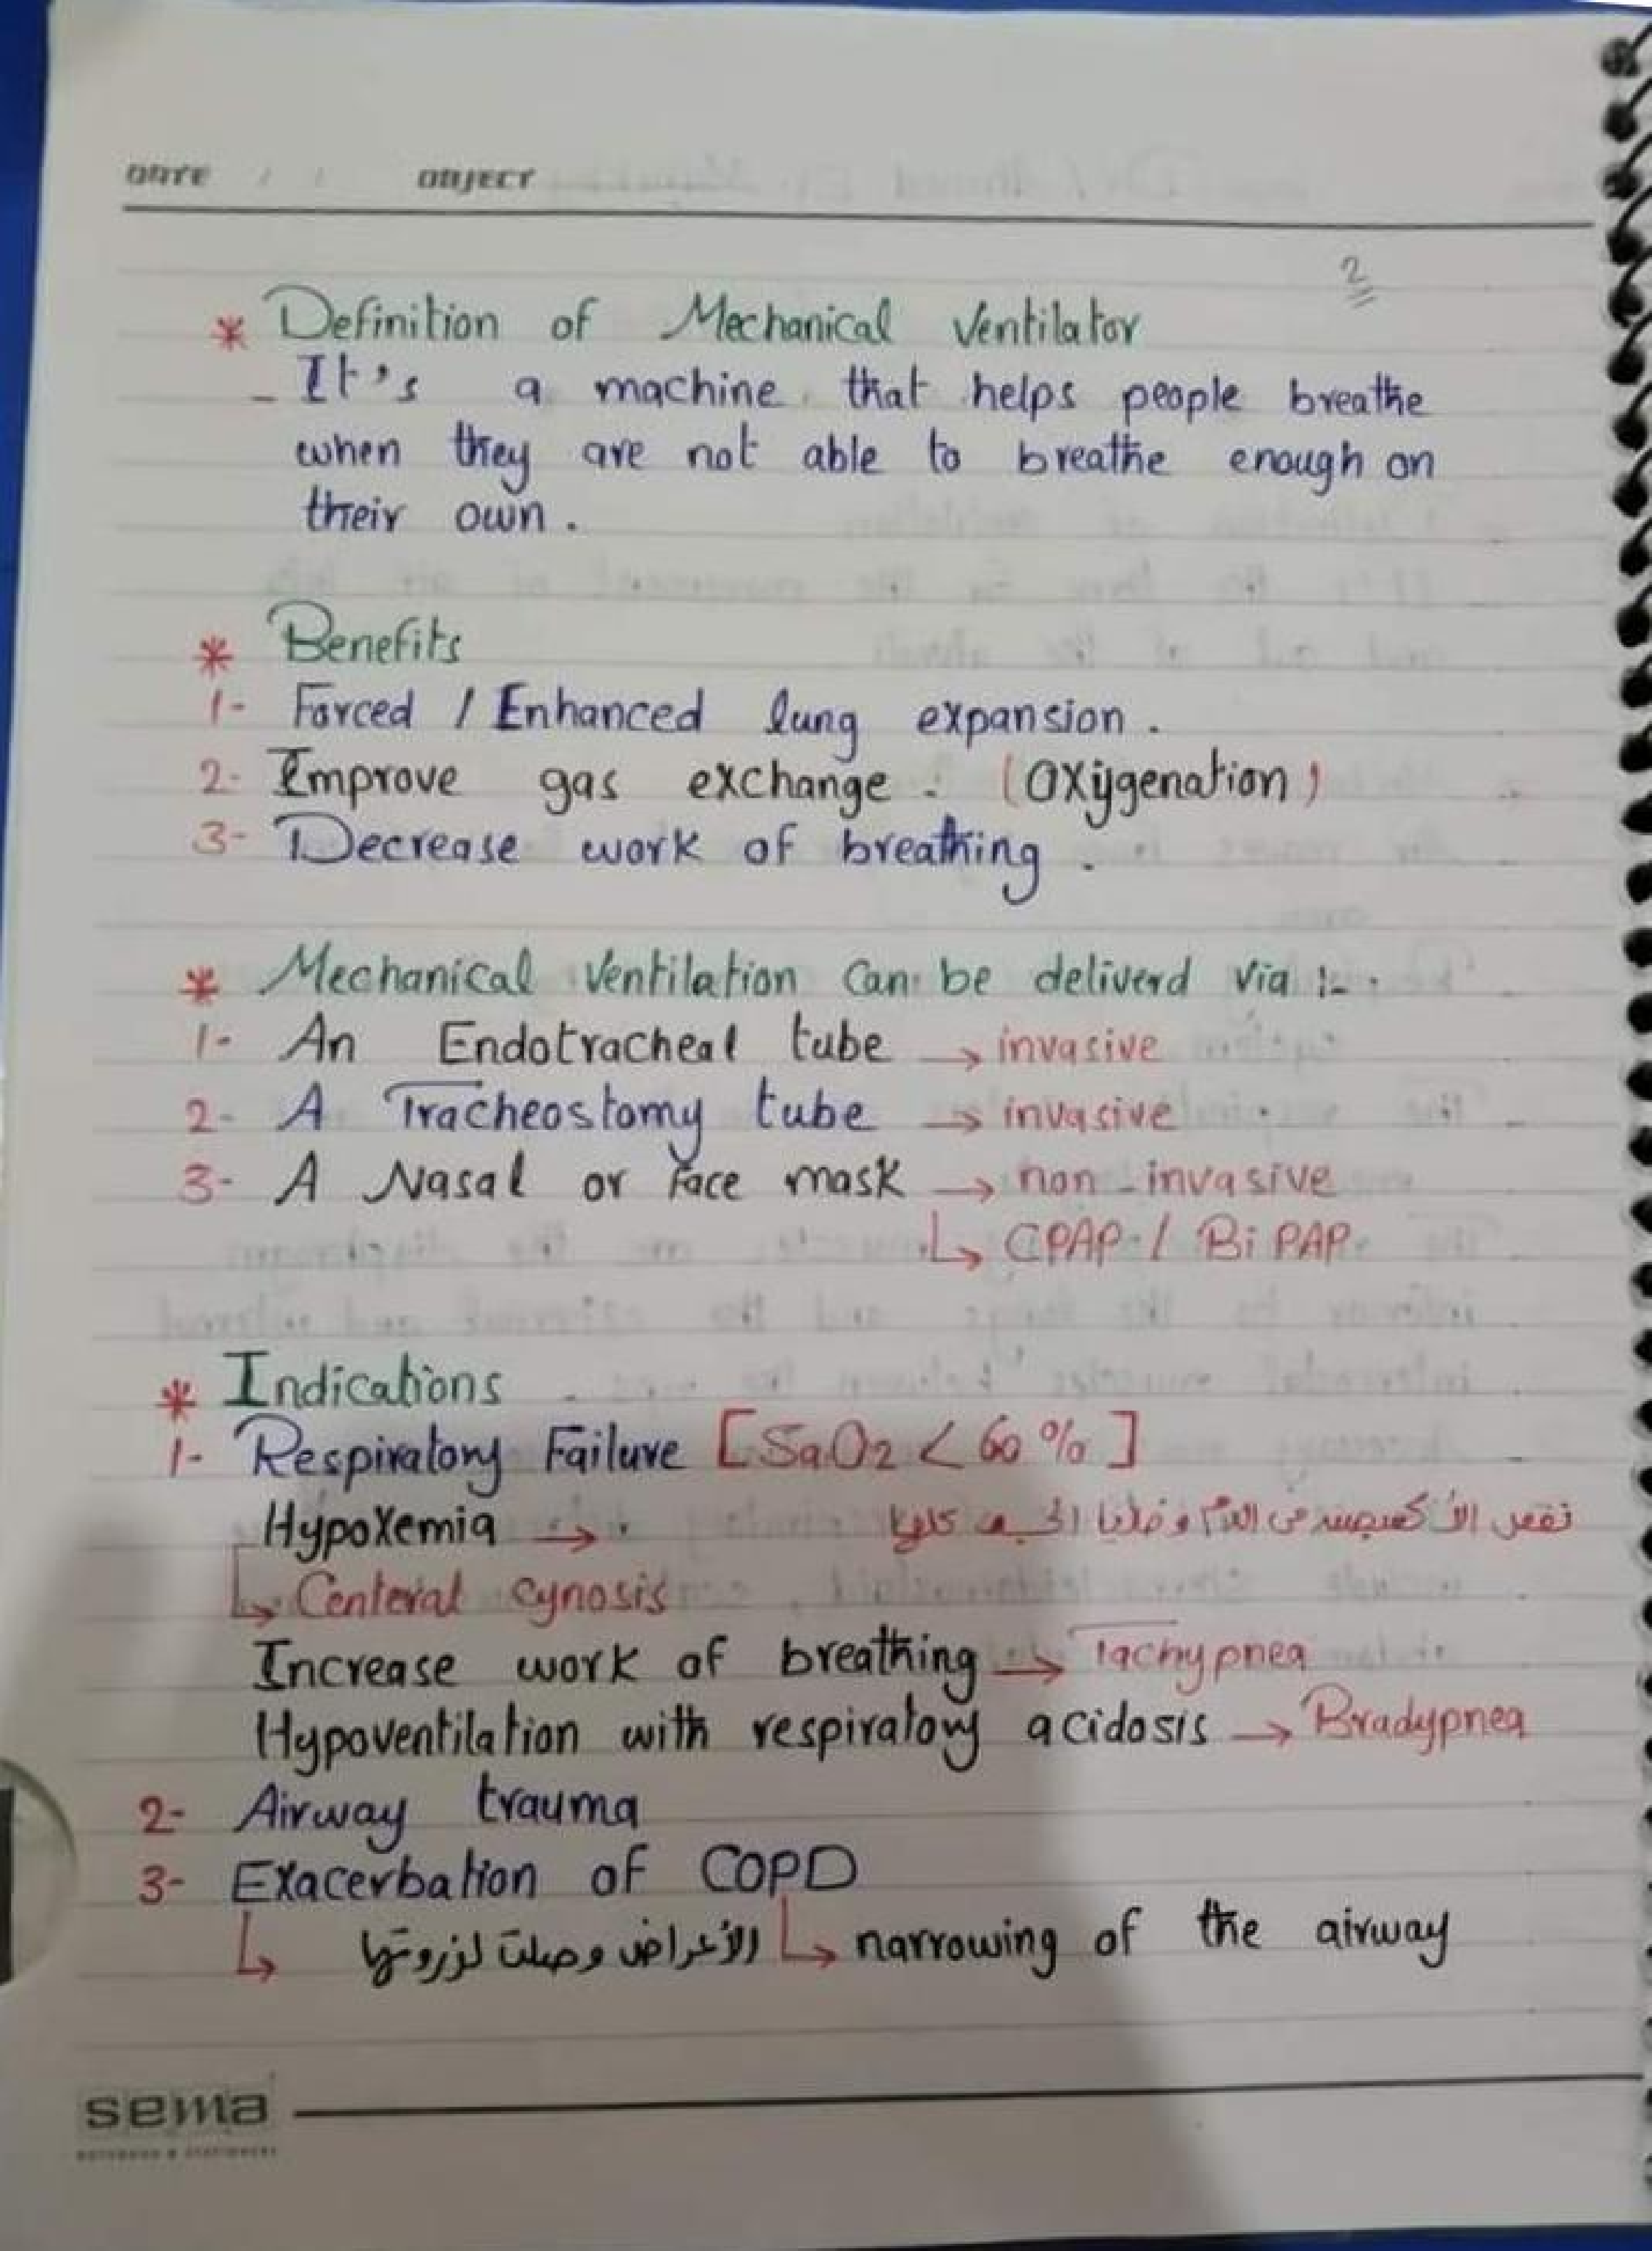 DATE / / OBJECT
2
* Definition of Mechanical Ventilator
- It's a machine that helps people breathe
when they are not able to breathe enough on
their own.
* Benefits
1- Forced / Enhanced lung expansion.
2- Improve gas exchange. (Oxygenation)
3- Decrease work of breathing.
* Mechanical Ventilation Can be deliverd via :-
1- An Endotracheal tube → invasive
2- A Tracheostomy tube → invasive
3- A Nasal or Face mask → non-invasive
↳ CPAP / BiPAP
* Indications
1- Respiratory Failure [SaO2 < 60%]
Hypoxemia → نقص الأكسجين في الدم وخلايا الجسم كلها
↳ Centeral cynosis
Increase work of breathing → Tachypnea
Hypoventilation with respiratory acidosis → Bradypnea
2- Airway trauma
3- Exacerbation of COPD
↳ الأعراض وصلت لزروتها ↳ narrowing of the airway
sema
NOTEBOOK & STATIONERY